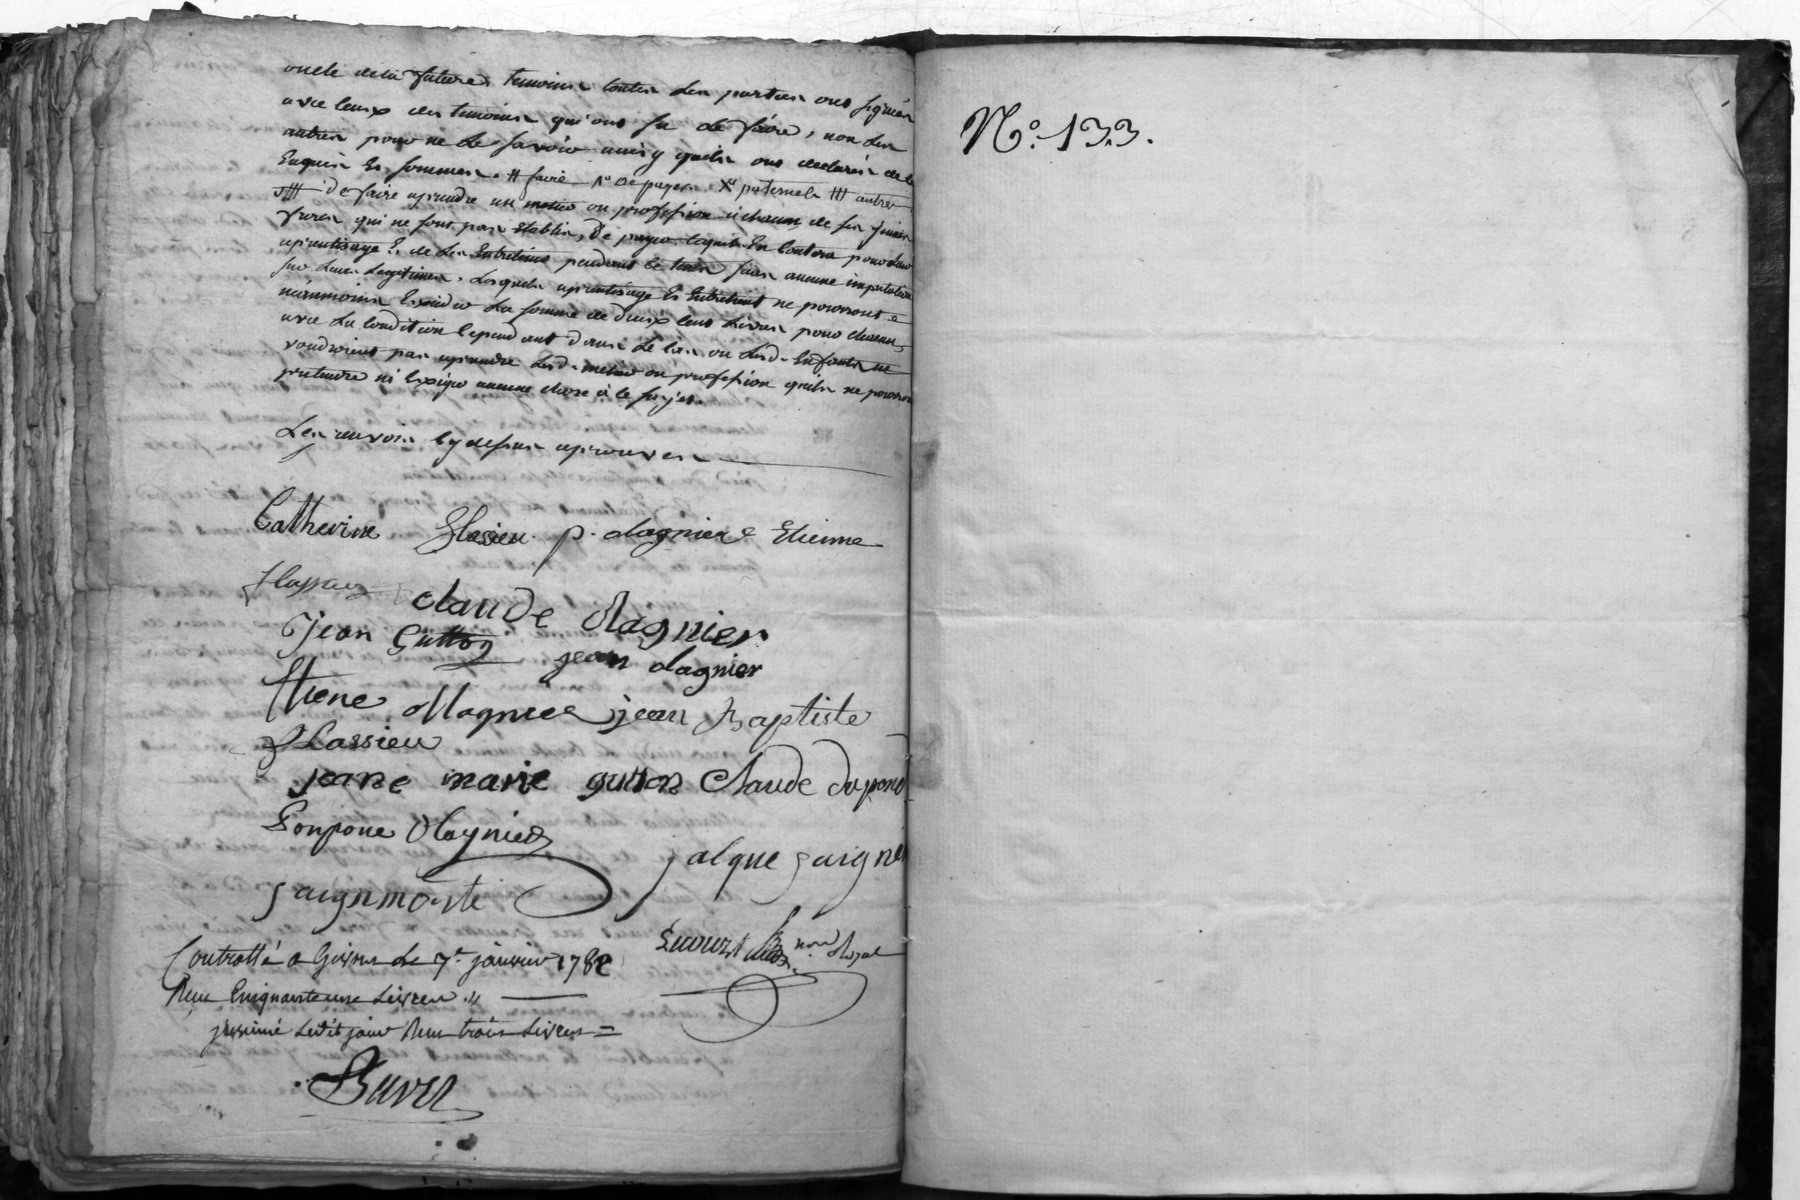 oncle dela future temoins toutes les parties ont signées
avec ceux des temoins qui ont su le faire, non les
autres pour ne le savoir ainsy quils ont declarés de ce
Enquis Et sommés. # faire de payer. paternels ## autres
### De faire aprendre un metier ou profession à chacun de ses freres
qui ne sont pas Etablis, De payer ce quil En coutera pour leur
aprentisage Et de les Entretenir pendant ce tems sans aucune imputation
sur leurs Legitimes, Lesquels aprentisage Et Entretient ne pourront
néanmoins Exceder la somme de Deux cent Livres pour chacun,
avec la condition cependant Dans le cas ou lesd. Enfants ne
voudroient pas aprendre lesd. metier ou profession quils ne pourront
pretendre ni Exiger aucune chose à ce sujet.
Les renvois cy dessus aprouvés
Catherine flassieu p. olagnier Etienne
flassieu claude Olagnier
jean Gutton jean olagnier
Etiene Olagnier jean Baptiste
flassieu
jeane marie guton Claude dupond
Ponpone Olagnier
jalque saigne
saignmorte
Controllé a Givors Le 7e. janvier 1782
Reçu Cinquante une Livres
insinué Ledit jour Reçu trois Livres =
nore Royal
N.º 133.